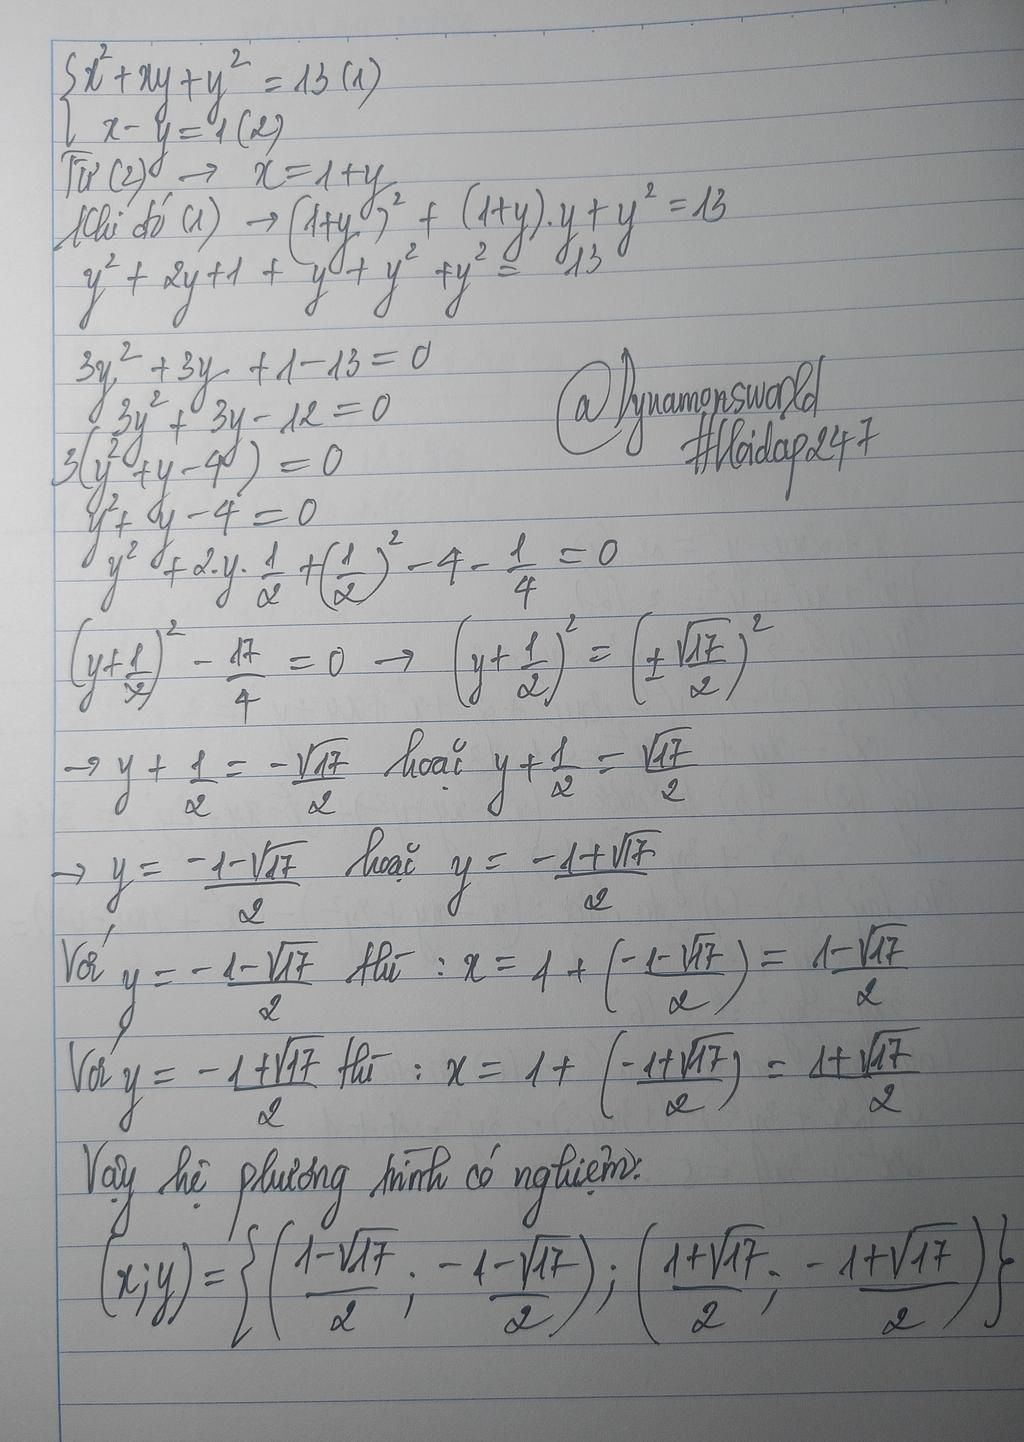 { x² + xy + y² = 13 (1)
x - y = 1 (2)
Từ (2) → x = 1 + y
Khi đó (1) → (1+y)² + (1+y).y + y² = 13
y² + 2y + 1 + y + y² + y² = 13
3y² + 3y + 1 - 13 = 0
3y² + 3y - 12 = 0
3(y² + y - 4) = 0
@Dynamonsworld
#Hoidap247
y² + y - 4 = 0
y² + 2.y.1/2 + (1/2)² - 4 - 1/4 = 0
(y + 1/2)² - 17/4 = 0 → (y + 1/2)² = (±√17/2)²
→ y + 1/2 = -√17/2 hoặc y + 1/2 = √17/2
→ y = (-1-√17)/2 hoặc y = (-1+√17)/2
Với y = (-1-√17)/2 thì : x = 1 + ((-1-√17)/2) = (1-√17)/2
Với y = (-1+√17)/2 thì : x = 1 + ((-1+√17)/2) = (1+√17)/2
Vậy hệ phương trình có nghiệm:
(x;y) = {((1-√17)/2 ; (-1-√17)/2) ; ((1+√17)/2 ; (-1+√17)/2)}